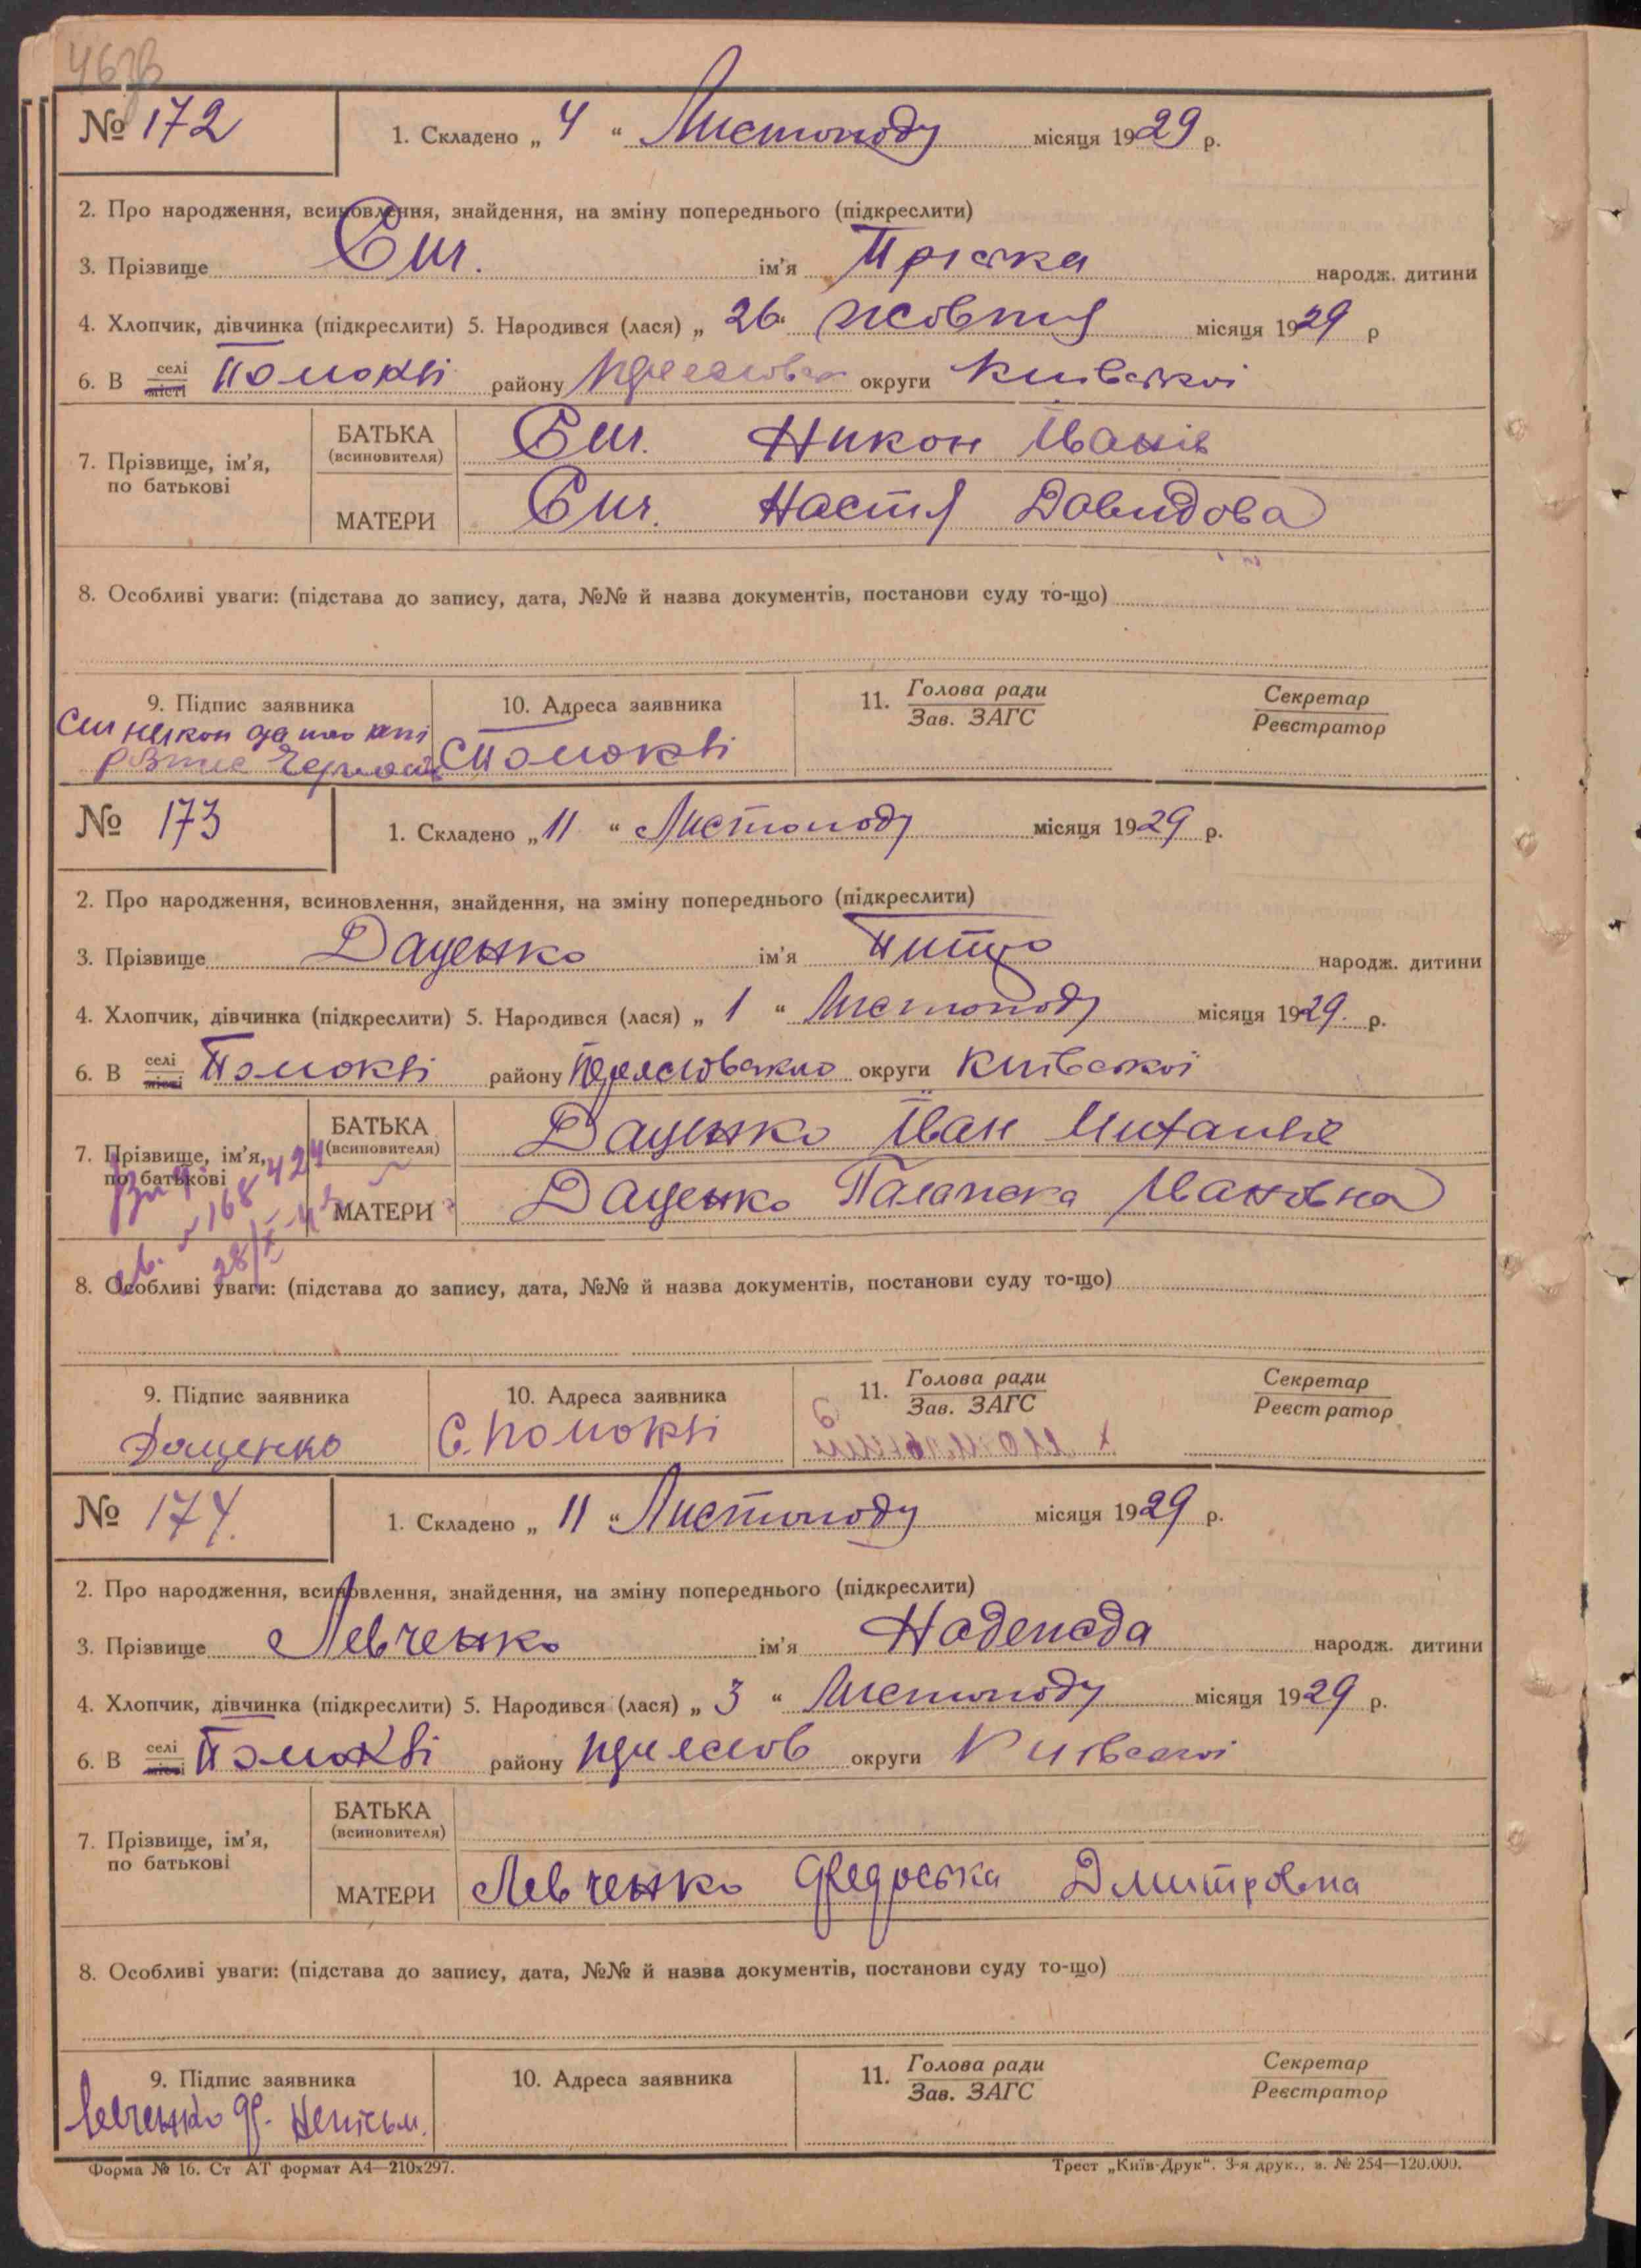 46зв
№ 172
1. Складено „ 4 “ Листопаду місяця 1929 р.
2. Про народження, всиновлення, знайдення, на зміну попереднього (підкреслити)
3. Прізвище ім'я Пріська народж. дитини
4. Хлопчик, дівчинка (підкреслити) 5. Народився (лася) „ 26 “ жовтня місяця 1929 р
6. В селі місті Помоклі району округи Київської
7. Прізвище, ім'я, по батькові
БАТЬКА (всиновителя) Никон Іванів
МАТЕРИ Настя Давидова
8. Особливі уваги: (підстава до запису, дата, №№ й назва документів, постанови суду то-що)
9. Підпис заявника
10. Адреса заявника
11. Голова ради Зав. ЗАГС
Секретар Реєстратор
С Помоклі
№ 173
1. Складено „ 11 “ Листопаду місяця 1929 р.
2. Про народження, всиновлення, знайдення, на зміну попереднього (підкреслити)
3. Прізвище Даценко ім'я народж. дитини
4. Хлопчик, дівчинка (підкреслити) 5. Народився (лася) „ 1 “ Листопаду місяця 1929. р.
6. В селі місті Помоклі району округи Київської
7. Прізвище, ім'я, по батькові
БАТЬКА (всиновителя) Даценко Іван
МАТЕРИ Даценко Палажка Івановна
8. Особливі уваги: (підстава до запису, дата, №№ й назва документів, постанови суду то-що)
9. Підпис заявника
10. Адреса заявника
11. Голова ради Зав. ЗАГС
Секретар Реєстратор
Даценко
С. Помоклі
№ 174.
1. Складено „ 11 “ Листопаду місяця 1929 р.
2. Про народження, всиновлення, знайдення, на зміну попереднього (підкреслити)
3. Прізвище Левченко ім'я Надежда народж. дитини
4. Хлопчик, дівчинка (підкреслити) 5. Народився (лася) „ 3 “ Листопаду місяця 1929 р.
6. В селі місті Помоклі району округи Київської
7. Прізвище, ім'я, по батькові
БАТЬКА (всиновителя)
МАТЕРИ Левченко Федоська Дмитровна
8. Особливі уваги: (підстава до запису, дата, №№ й назва документів, постанови суду то-що)
9. Підпис заявника
10. Адреса заявника
11. Голова ради Зав. ЗАГС
Секретар Реєстратор
Левченко Ф. Неписьм.
Форма № 16. Ст АТ формат А4—210х297.
Трест „Київ-Друк“. 3-я друк., з. № 254—120.000.